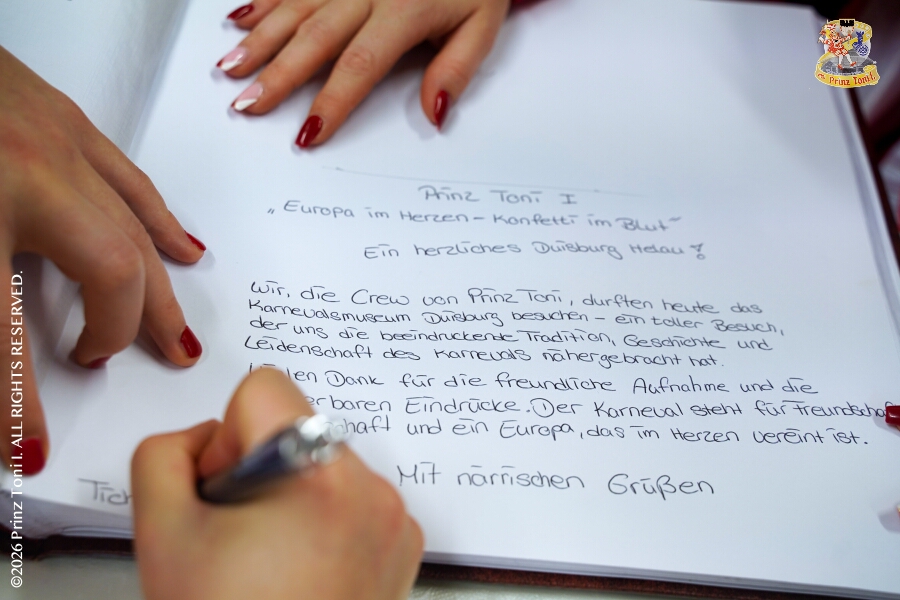 Prinz Toni I
„Europa im Herzen – Konfetti im Blut"
Ein herzliches Duisburg Helau!
Wir, die Crew von Prinz Toni, durften heute das
Karnevalsmuseum Duisburg besuchen – ein toller Besuch,
der uns die beeindruckende Tradition, Geschichte und
Leidenschaft des Karnevals nähergebracht hat.
Dank für die freundliche Aufnahme und die
Eindrücke. Der Karneval steht für
und ein Europa, das im Herzen vereint ist.
Mit närrischen Grüßen
Prinz Toni I.
©2026 Prinz Toni I. ALL RIGHTS RESERVED.